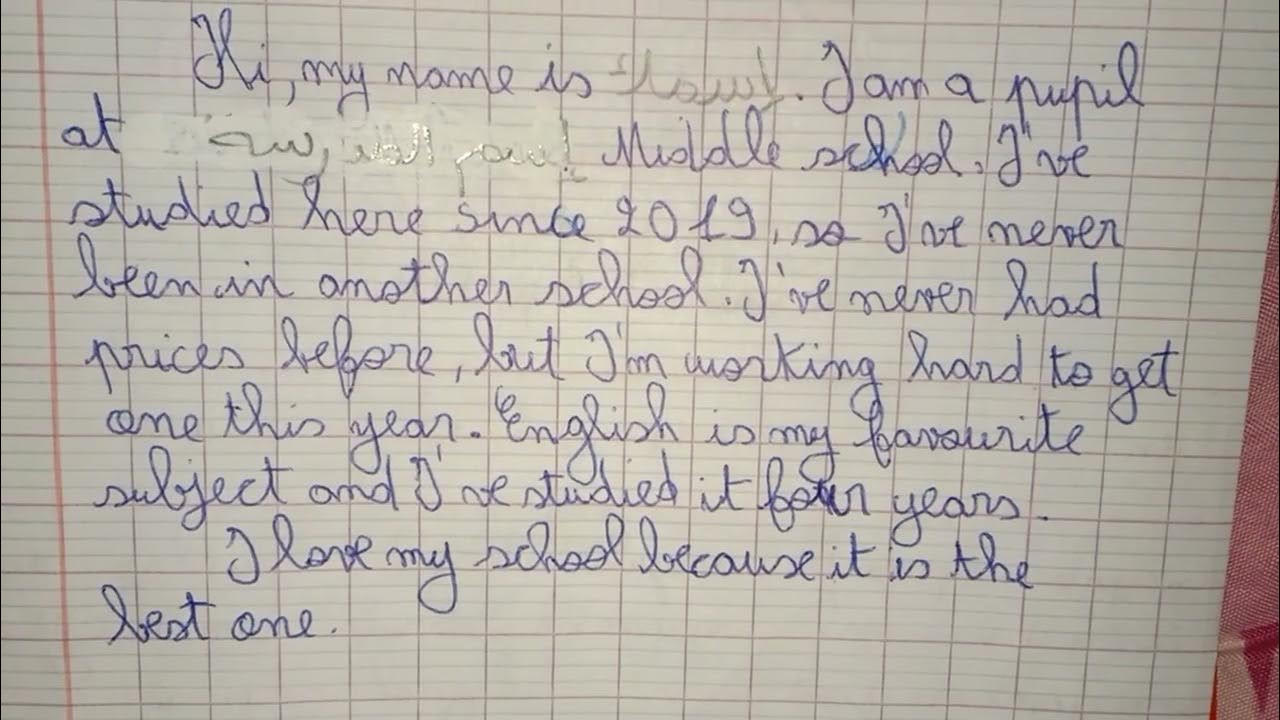 Hi, my name is . I am a pupil
at Middle school. I've
studied here since 2019, so I've never
been in another school. I've never had
prices before, but I'm working hard to get
one this year. English is my favourite
subject and I've studied it four years.
I love my school because it is the
best one.